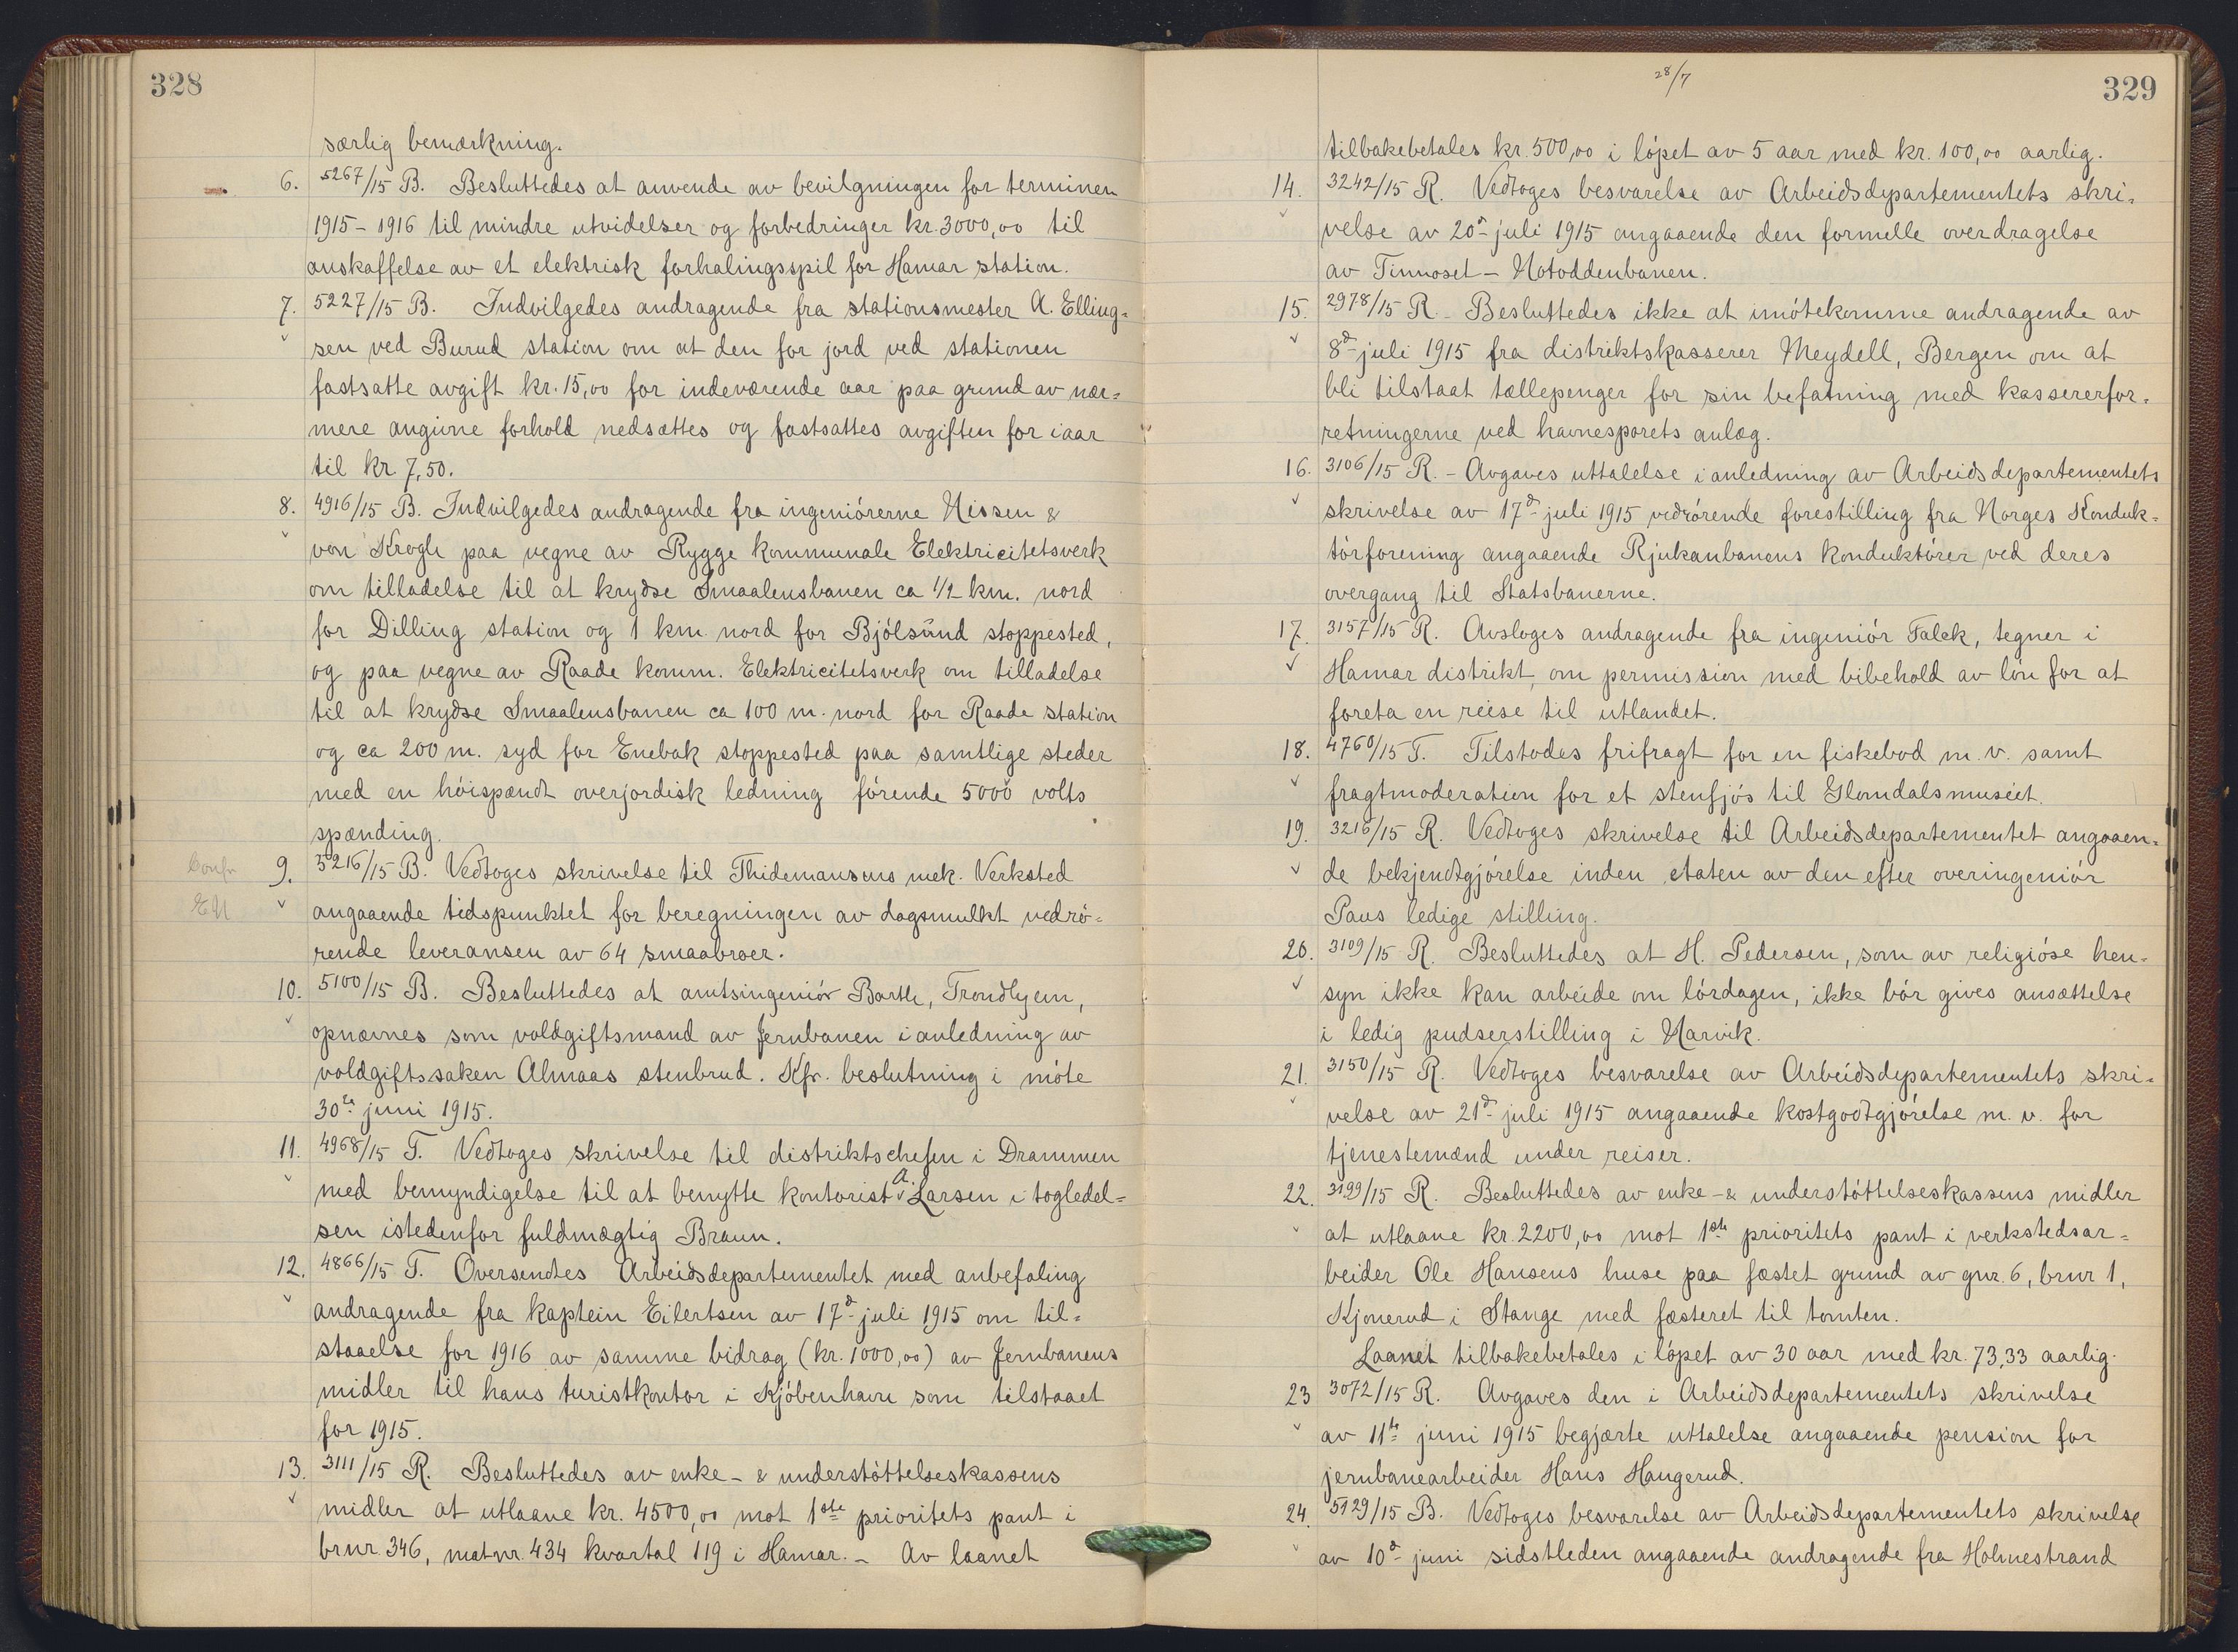 328
særlig bemærkning.
6. 5267/15 B. Besluttedes at anvende av bevilgningen for terminen
1915 - 1916 til mindre utvidelser og forbedringer kr. 3000,00 til
anskaffelse av et elektrisk forhalingsspil for Hamar station.
7. 5227/15 B. Indvilgedes andragende fra stationsmester A. Elling=
sen ved Burud station om at den for jord ved stationen
fastsatte avgift kr. 15,00 for indeværende aar paa grund av nær=
mere angivne forhold nedsættes og fastsattes avgiften for iaar
til kr 7,50.
8. 4916/15 B. Indvilgedes andragende fra ingeniörerne Nissen &
von Krogh paa vegne av Rygge kommunale Elektricitetsverk
om tilladelse til at krydse Smaalensbanen ca 1/2 km. nord
for Dilling station og 1 km nord for Bjölsund stoppested,
og paa vegne av Raade komm. Elektricitetsverk om tilladelse
til at krydse Smaalensbanen ca 100 m. nord for Raade station
og ca 200 m. syd for Enebak stoppested paa samtlige steder
med en höispændt overjordisk ledning förende 5000 volts
spænding.
Confr 9. 5216/15 B. Vedtoges skrivelse til Thidemansens mek. Verksted
EN angaaende tidspunktet for beregningen av dagsmulkt vedrö=
rende leveransen av 64 smaabroer.
10. 5100/15 B. Besluttedes at amtsingeniör Barth, Trondhjem,
opnævnes som voldgiftsmand av Jernbanen i anledning av
voldgiftssaken Almaas stenbrud. Kfr. beslutning i möte
30te juni 1915.
11. 4968/15 T. Vedtoges skrivelse til distriktschefen i Drammen
med bemyndigelse til at benytte kontorist A. Larsen i togledel=
sen istedenfor fuldmægtig Braun.
12. 4866/15 T. Oversendtes Arbeidsdepartementet med anbefaling
andragende fra kaptein Eilertsen av 17d juli 1915 om til=
staaelse for 1916 av samme bidrag (kr. 1000,00) av Jernbanens
midler til hans turistkontor i Kjöbenhavn som tilstaaet
for 1915.
13. 3111/15 R. Besluttedes av enke- & understöttelseskassens
midler at utlaane kr. 4500,00 mot 1ste prioritets pant i
brnr. 346, matnr. 434 kvartal 119 i Hamar. - Av laanet
28/7
329
tilbakebetales kr. 500,00 i löpet av 5 aar med kr. 100,00 aarlig.
14. 3242/15 R. Vedtoges besvarelse av Arbeidsdepartementets skri=
velse av 20d juli 1915 angaaende den formelle overdragelse
av Tinnoset - Notoddenbanen.
15. 2978/15 R. - Besluttedes ikke at imötekomme andragende av
8d juli 1915 fra distriktskasserer Meydell, Bergen om at
bli tilstaat tællepenger for sin befatning med kassererfor=
retningerne ved havnesporets anlæg.
16. 3106/15 R. - Avgaves uttalelse i anledning av Arbeidsdepartementets
skrivelse av 17d juli 1915 vedrörende forestilling fra Norges Konduk=
törforening angaaende Rjukanbanens konduktörer ved deres
overgang til Statsbanerne.
17. 3157/15 R. Avsloges andragende fra ingeniör Falck, tegner i
Hamar distrikt, om permission med bibehold av lön for at
foreta en reise til utlandet.
18. 4760/15 T. Tilstodes frifragt for en fiskebod m. v. samt
fragtmoderation for et stenfjös til Glomdalsmuséet.
19. 3216/15 R. Vedtoges skrivelse til Arbeidsdepartementet angaaen=
de bekjendtgjörelse inden etaten av den efter overingeniör
Paus ledige stilling.
20. 3109/15 R. Besluttedes at H. Pedersen, som av religiöse hen=
syn ikke kan arbeide om lördagen, ikke bör gives ansættelse
i ledig pudserstilling i Narvik.
21. 3150/15 R. Vedtoges besvarelse av Arbeidsdepartementets skri=
velse av 21d juli 1915 angaaende kostgodtgjörelse m. v. for
tjenestemænd under reiser.
22. 3199/15 R. Besluttedes av enke- & understöttelseskassens midler
at utlaane kr. 2200,00 mot 1ste prioritets pant i verkstedsar=
beider Ole Hansens huse paa fæstet grund av gnr. 6, brnr 1,
Kjonerud i Stange med fæsteret til tomten.
Laanet tilbakebetales i löpet av 30 aar med kr. 73,33 aarlig.
23 3072/15 R. Avgaves den i Arbeidsdepartementets skrivelse
av 11te juni 1915 begjærte uttalelse angaaende pension for
jernbanearbeider Hans Haugerud.
24. 5129/15 B. Vedtoges besvarelse av Arbeidsdepartementets skrivelse
av 10d juni sidstleden angaaende andragende fra Holmestrand